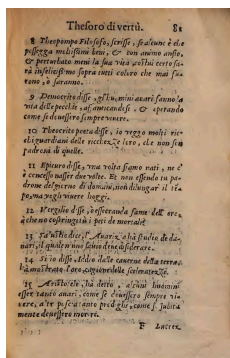 Thesoro di vertù. 81
8 Theopompo Filosofo, scrisse, se alcun' è che
possegga moltissimi beni, & con animo ansio,
& perturbato meni la sua vita costui certo sa-
rà infelicissimo sopra tutti coloro che mai fu-
rono, ò saranno.
9 Democrito disse, gl'huomini auari fanno la
vita delle pecchie, affaticandosi, & operando
come se douessero sempre viuere.
10 Theocrito poeta disse, io veggo molti ric-
chi guardiani delle ricchezze loro, che non sen
padroni di quelle.
11 Epicuro disse, vna volta siamo nati, ne c'
è concesso nasser due volte. Et non essendo tu pa-
drone del giorno di domani, non dilungar il tē-
po, ma vogli viuere hoggi.
12 Vergilio disse, ò esseranda fame dell'oro,
che non costringi tu i peti de mortali
13 Salustio dice, l'Auaritia ha studio de da-
nari, il qual niuno sauio deue desiderare.
14 Sì io disse, Iddio dalle cauerne della terra,
hà mostrato l'oro, cagione delle sceleratezze.
15 Aristotele, hà detto, alcuni huomini
esser tanto auari, come se douessero sempre vi-
uere, altri poi tanto prodighi, come se subita
mente douessero morire.
F Lucrez